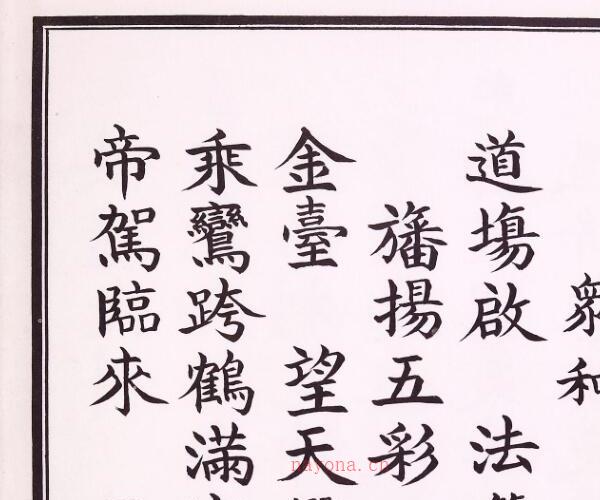 眾和
道場啟 法
旛揚五彩
金臺 望天
乘鸞跨鶴滿
帝駕臨來
nayona.cn